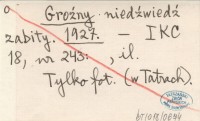 Groźny niedźwiedź
zabity. 1927. — IKC
18, nr 243: , il.
Tylko fot. (w Tatrach).